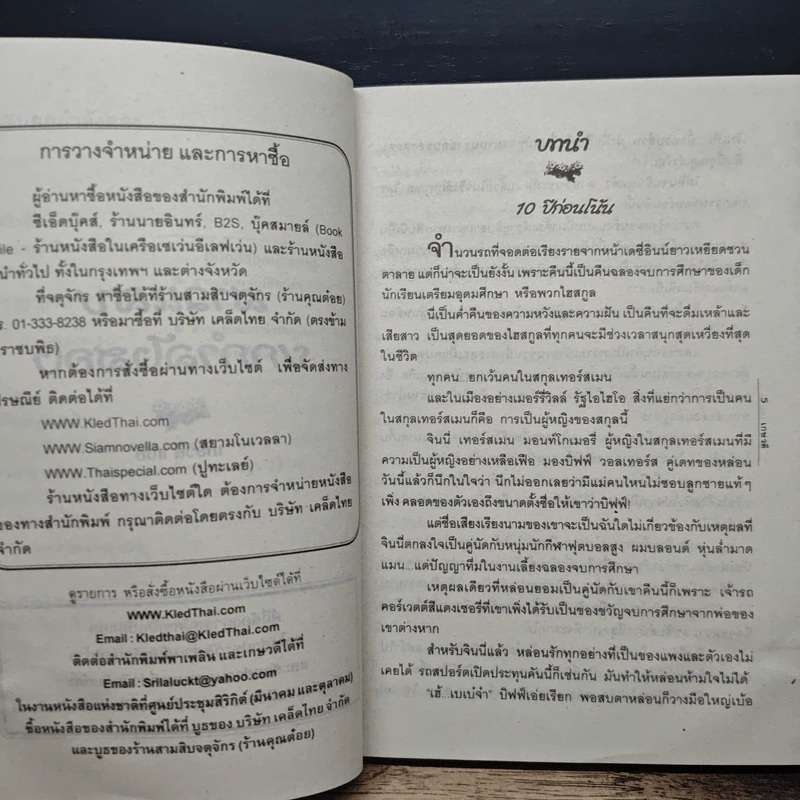 การวางจำหน่าย และการหาซื้อ
ผู้อ่านหาซื้อหนังสือของสำนักพิมพ์ได้ที่
ซีเอ็ดบุ๊คส์, ร้านนายอินทร์, B2S, บุ๊คสมายล์ (Book
ile - ร้านหนังสือในเครือเซเว่นอีเลฟเว่น) และร้านหนังสือ
นำทั่วไป ทั้งในกรุงเทพฯ และต่างจังหวัด
ที่จตุจักร หาซื้อได้ที่ร้านสามสิบจตุจักร (ร้านคุณต๋อย)
ร. 01-333-8238 หรือมาซื้อที่ บริษัท เคล็ดไทย จำกัด (ตรงข้าม
ราชบพิธ)
หากต้องการสั่งซื้อผ่านทางเว็บไซต์ เพื่อจัดส่งทาง
ปรษณีย์ ติดต่อได้ที่
WWW.KledThai.com
WWW.Siamnovella.com (สยามโนเวลลา)
WWW.Thaispecial.com (ปูทะเลย์)
ร้านหนังสือทางเว็บไซต์ใด ต้องการจำหน่ายหนังสือ
ของทางสำนักพิมพ์ กรุณาติดต่อโดยตรงกับ บริษัท เคล็ดไทย
จำกัด
ดูรายการ หรือสั่งซื้อหนังสือผ่านเว็บไซต์ได้ที่
WWW.KledThai.com
Email : Kledthai@KledThai.com
ติดต่อสำนักพิมพ์พาเพลิน และเกษวดีได้ที่
Email : Srilaluckt@yahoo.com
ในงานหนังสือแห่งชาติที่ศูนย์ประชุมสิริกิติ์ (มีนาคม และตุลาคม)
ซื้อหนังสือของสำนักพิมพ์ได้ที่ บูธของ บริษัท เคล็ดไทย จำกัด
และบูธของร้านสามสิบจตุจักร (ร้านคุณต๋อย)
บทนำ
10 ปีก่อนโน้น
จำนวนรถที่จอดต่อเรียงรายจากหน้าเดซี่อินน์ยาวเหยียดชวน
ตาลาย แต่ก็น่าจะเป็นยังงั้น เพราะคืนนี้เป็นคืนฉลองจบการศึกษาของเด็ก
นักเรียนเตรียมอุดมศึกษา หรือพวกไฮสกูล
นี่เป็นค่ำคืนของความหวังและความฝัน เป็นคืนที่จะดื่มเหล้าและ
เสียสาว เป็นสุดยอดของไฮสกูลที่ทุกคนจะมีช่วงเวลาสนุกสุดเหวี่ยงที่สุด
ในชีวิต
ทุกคน...ยกเว้นคนในสกุลเทอร์สเมน
และในเมืองอย่างเมอร์รี่วิลล์ รัฐไอไฮโอ สิ่งที่แย่กว่าการเป็นคน
ในสกุลเทอร์สเมนก็คือ การเป็นผู้หญิงของสกุลนี้
จินนี่ เทอร์สเมน มอนท์โกเมอรี่ ผู้หญิงในสกุลเทอร์สเมนที่มี
ความเป็นผู้หญิงอย่างเหลือเฟือ มองบิฟฟ์ วอลเทอร์ส คู่เดทของหล่อน
วันนี้แล้วก็นึกในใจว่า นึกไม่ออกเลยว่ามีแม่คนไหนไม่ชอบลูกชายแท้ๆ
เพิ่งคลอดของตัวเองถึงขนาดตั้งชื่อให้เขาว่าบิฟฟ์!
แต่ชื่อเสียงเรียงนามของเขาจะเป็นฉันใดไม่เกี่ยวข้องกับเหตุผลที่
จินนี่ตกลงใจเป็นคู่นัดกับหนุ่มนักกีฬาฟุตบอลสูง ผมบลอนด์ หุ่นล่ำมาด
แมน...แต่ปัญญาทึ่มในงานเลี้ยงฉลองจบการศึกษา
เหตุผลเดียวที่หล่อนยอมเป็นคู่นัดกับเขาคืนนี้ก็เพราะ เจ้ารถ
คอร์เวตต์สีแดงเชอรี่ที่เขาเพิ่งได้รับเป็นของขวัญจบการศึกษาจากพ่อของ
เขาต่างหาก
สำหรับจินนี่แล้ว หล่อนรักทุกอย่างที่เป็นของแพงและตัวเองไม่
เคยได้ รถสปอร์ตเปิดประทุนคันนี้ก็เช่นกัน มันทำให้หล่อนห้ามใจไม่ได้
"เฮ้...เบเบ๋จ๋า" บิฟฟ์เอ่ยเรียก พอสบตาหล่อนก็วางมือใหญ่เบ้อ
5
เกษวดี